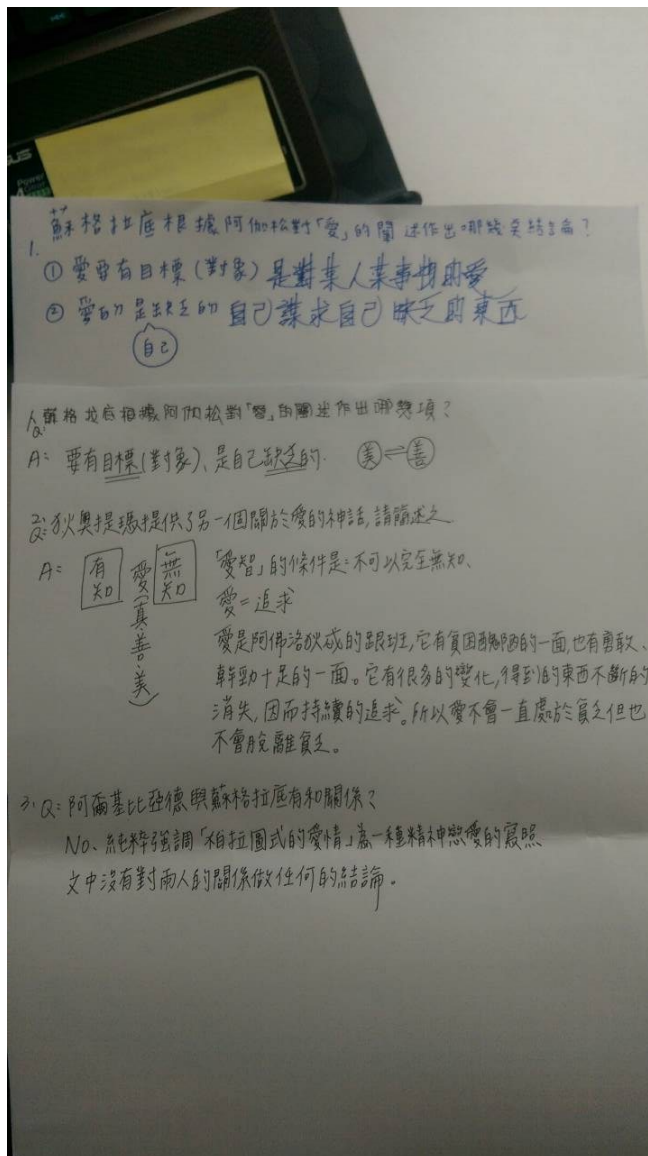 SUS
Power
蘇格拉底根據阿伽松對「愛」的闡述作出哪幾點結論?
1.
① 愛要有目標(對象)是對某人某事物的愛
② 愛的是缺乏的 自己謀求自己缺乏的東西
自己
1. 蘇格拉底根據阿伽松對「愛」的闡述作出哪幾項?
Q:
A: 要有目標(對象)、是自己缺乏的. 美⇌善
2.
Q: 狄奧提瑪提供了另一個關於愛的神話,請簡述之
A: 有知 愛(真、善、美) 無知
「愛智」的條件是:不可以完全無知、
愛=追求
愛是阿佛洛狄忒的跟班,它有貧困醜陋的一面,也有勇敢、
幹勁十足的一面。它有很多的變化,得到的東西不斷的
消失,因而持續的追求。所以愛不會一直處於貧乏但也
不會脫離貧乏。
3. Q: 阿爾基比亞德與蘇格拉底有和關係?
No、純粹強調「柏拉圖式的愛情」為一種精神戀愛的寫照
文中沒有對兩人的關係做任何的結論。